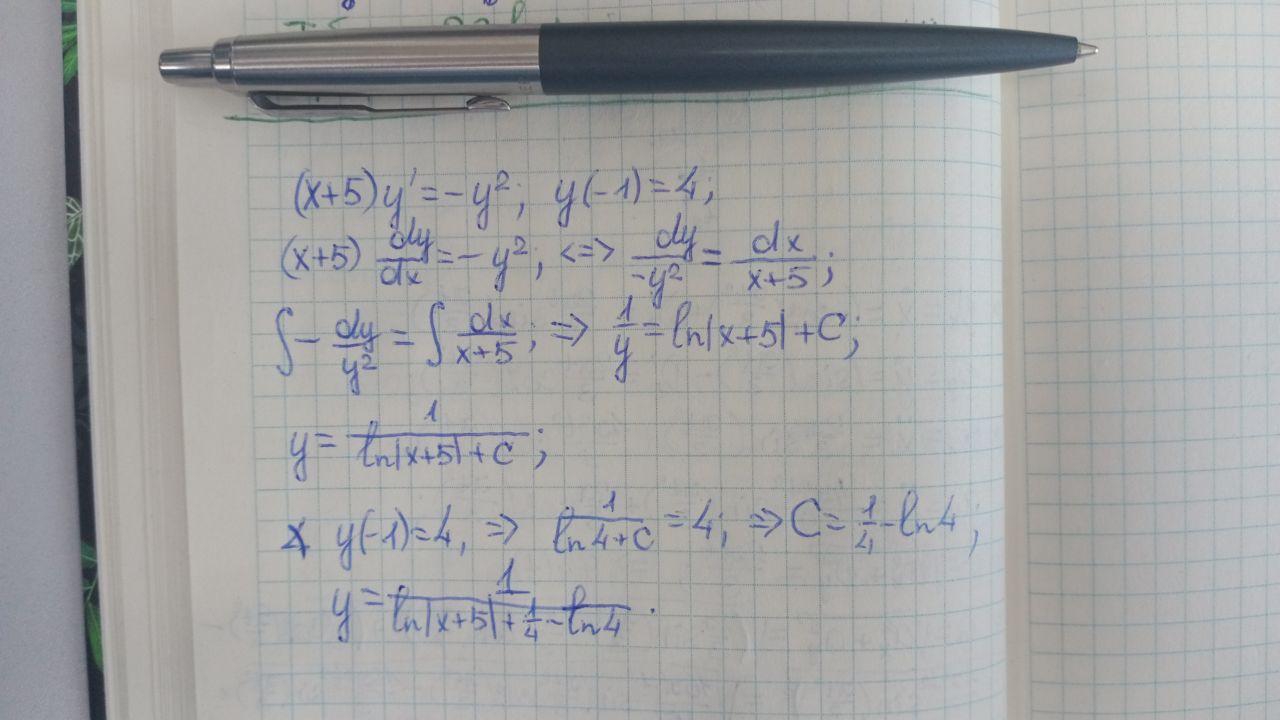 (x+5)y' = -y²; y(-1)=4;
(x+5) dy/dx = -y²; <=> dy/-y² = dx/x+5;
∫- dy/y² = ∫ dx/x+5; => 1/y = ln|x+5| + C;
y = 1/ln|x+5|+C;
y(-1)=4, => 1/ln4+C = 4; => C = 1/4 - ln4;
y = 1/ln|x+5|+1/4-ln4.